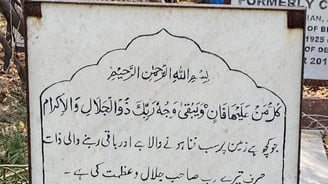 FORMERLY
بسم اللہ الرحمٰن الرحیم
كُلُّ مَنْ عَلَيْهَا فَانٍ وَّيَبْقٰى وَجْهُ رَبِّكَ ذُو الْجَلَالِ وَالْاِكْرَامِ
جو کچھ ہے زمین پر سب فنا ہونے والا ہے اور باقی رہنے والی ذات
صرف تیرے رب صاحب جلال و عظمت کی ہے۔